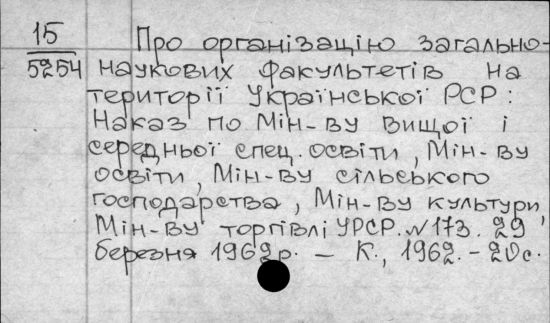 15
5254
Про організацію загально-
наукових факультетів на
території Української РСР:
Наказ по Мін-ву вищої і
середньої спец. освіти, Мін-ву
освіти, Мін-ву сільського
господарства, Мін-ву культури,
Мін-ву торгівлі УРСР. № 173. 29
березня 1962 р. — К., 1962. - 20с.